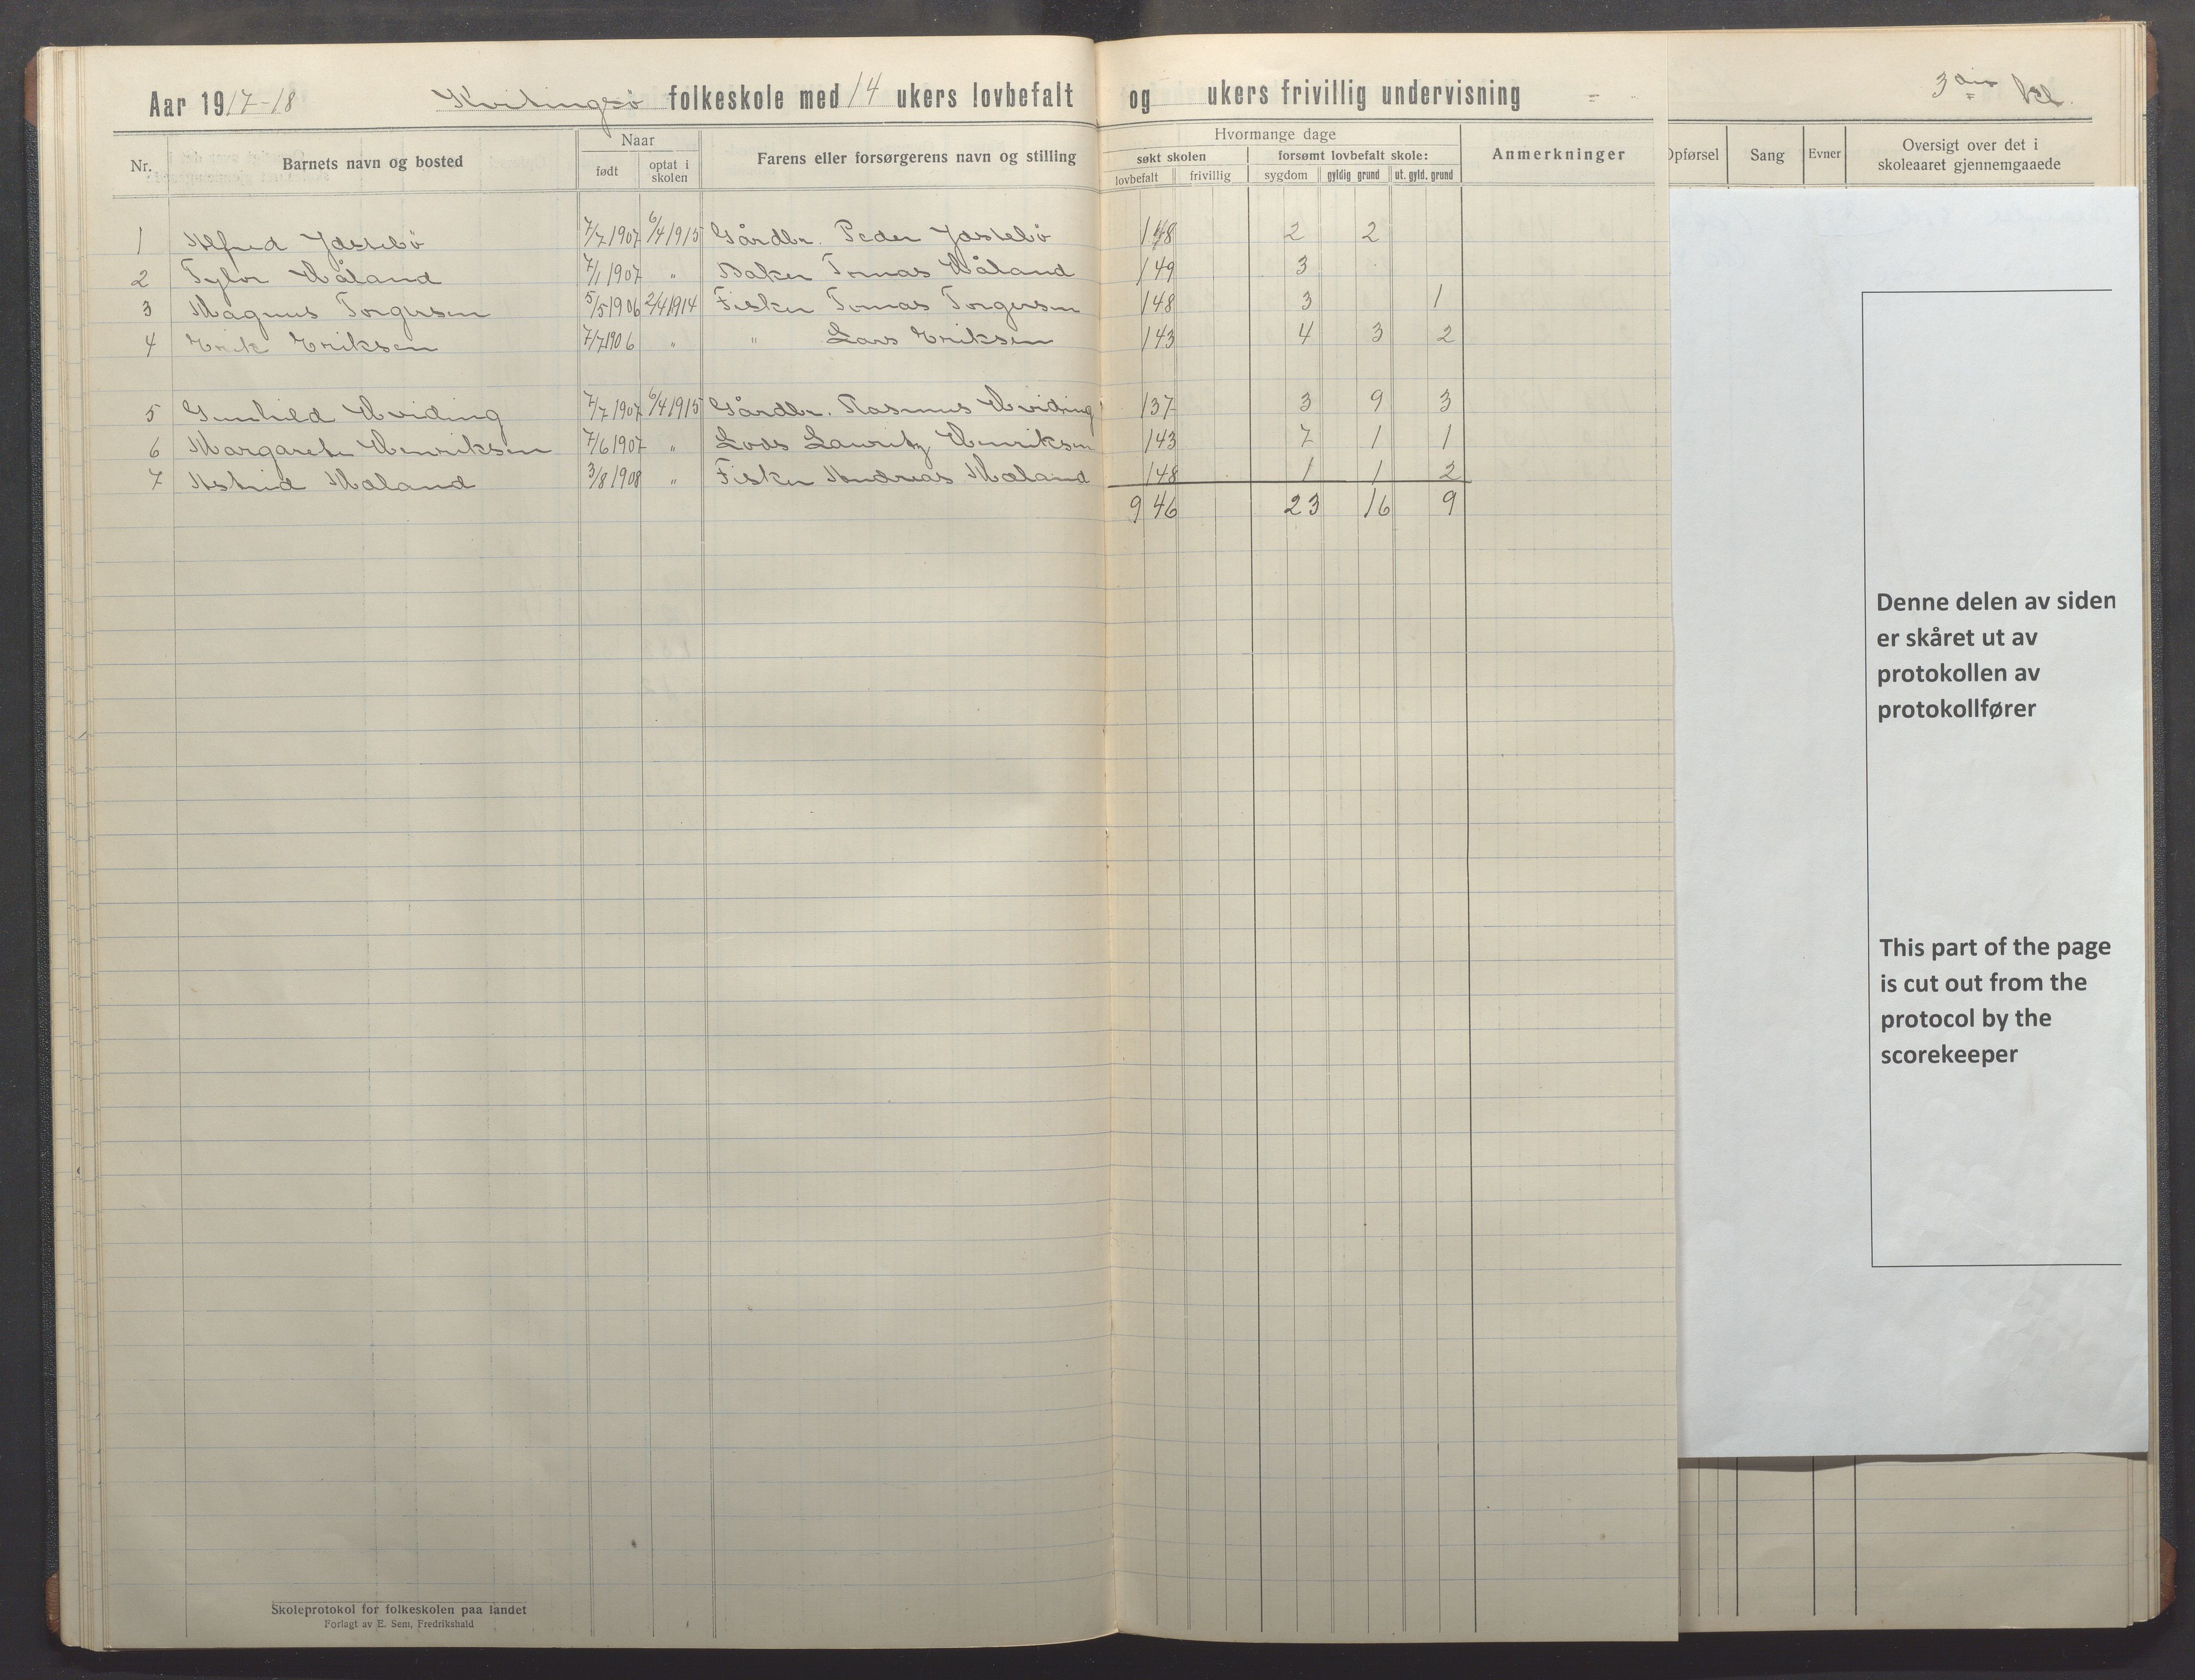 Aar 1917-18 Kvitingsø folkeskole med 14 ukers lovbefalt og ukers frivillig undervisning = 3die kl.
Nr. Barnets navn og bosted Naar Farens eller forsørgerens navn og stilling Hvormange dage Anmerkninger Opførsel Sang Evner Oversigt over det i skoleaaret gjennemgaaede
født optat i skolen søkt skolen forsømt lovbefalt skole:
lovbefalt frivillig sygdom gyldig grund ut. gyld. grund
1 Alfred Ydstebø 7/7 1907 6/4 1915 Gårdbr. Peder Ydstebø 148 2 2
2 Tylor Håland 7/1 1907 " Baker Tomas Håland 149 3
3 Magnus Torgersen 5/5 1906 2/4 1914 Fisker Tomas Torgersen 148 3 1
4 Erik Eriksen 7/7 1906 " " Lars Eriksen 143 4 3 2
5 Gunhild Hviding 7/7 1907 6/4 1915 Gårdbr. Rasmus Hviding 137 3 9 3
6 Margarete Henriksen 7/6 1907 " Lods Lauritz Henriksen 143 7 1 1
7 Astrid Mæland 3/8 1908 " Fisker Andreas Mæland 148 1 1 2
946 23 16 9
Denne delen av siden
er skåret ut av
protokollen av
protokollfører
This part of the page
is cut out from the
protocol by the
scorekeeper
Skoleprotokol for folkeskolen paa landet
Forlagt av E. Sem, Fredrikshald